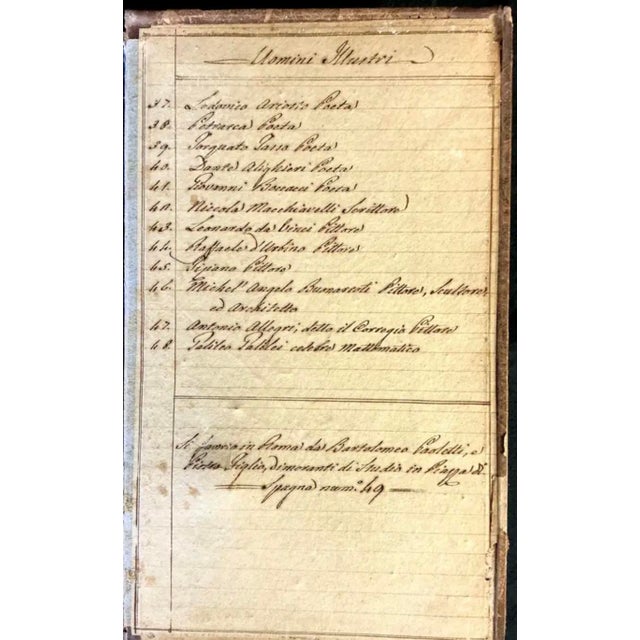 Uomini Illustri
37. Lodovico Ariosto Poeta
38. Petrarca Poeta
39. Torquato Tasso Poeta
40. Dante Alighieri Poeta
41. Giovanni Boccacci Poeta
42. Niccola Macchiavelli Scrittore
43. Leonardo da Vinci Pittore
44. Raffaele d'Urbino Pittore
45. Tiziano Pittore
46. Michel' Angelo Bunaroti Pittore, Scultore,
ed Architetto
47. Antonio Allegri, detto il Coregio Pittore
48. Galileo Galilei celebre Mattematico
Si fanno in Roma da Bartolomeo Paoletti, e
Pietro Figlio, dimoranti di Studio in Piazza di
Spagna num.° 49